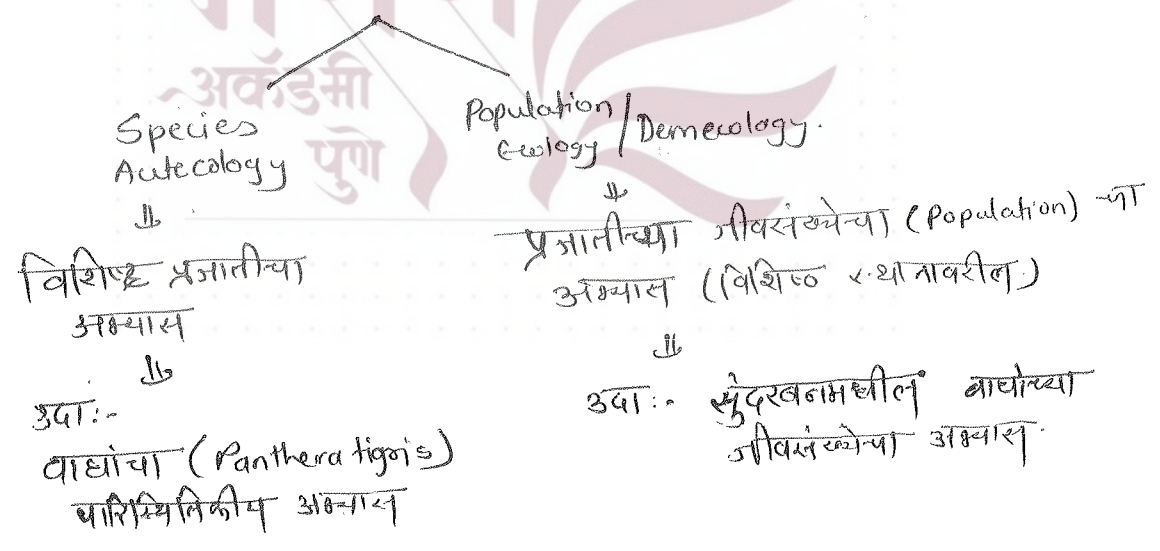 अकॅडमी
पुणे
Species
Autecology
⇓
विशिष्ट प्रजातीचा
अभ्यास
⇓
उदा:-
वाघांचा (Panthera tigris)
पारिस्थितिकीय अभ्यास
Population Ecology / Demecology.
⇓
प्रजातीच्या जीवसंख्येचा (Population) चा
अभ्यास (विशिष्ठ स्थानावरील)
⇓
उदा:- सुंदरबनमधील वाघांच्या
जीवसंख्येचा अभ्यास.